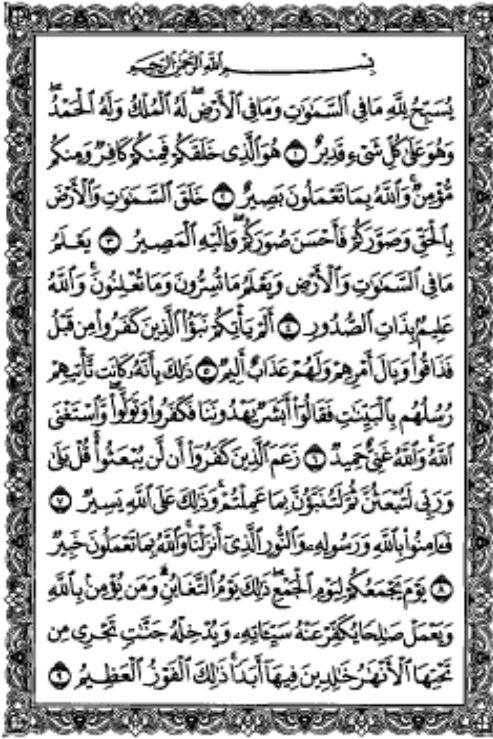 بِسْمِ ٱللَّهِ ٱلرَّحْمَٰنِ ٱلرَّحِيمِ
يُسَبِّحُ لِلَّهِ مَا فِى ٱلسَّمَٰوَٰتِ وَمَا فِى ٱلْأَرْضِۖ لَهُ ٱلْمُلْكُ وَلَهُ ٱلْحَمْدُۖ
وَهُوَ عَلَىٰ كُلِّ شَىْءٍ قَدِيرٌ ١ هُوَ ٱلَّذِى خَلَقَكُمْ فَمِنكُمْ كَافِرٌ وَمِنكُم
مُّؤْمِنٌۚ وَٱللَّهُ بِمَا تَعْمَلُونَ بَصِيرٌ ٢ خَلَقَ ٱلسَّمَٰوَٰتِ وَٱلْأَرْضَ
بِٱلْحَقِّ وَصَوَّرَكُمْ فَأَحْسَنَ صُوَرَكُمْۖ وَإِلَيْهِ ٱلْمَصِيرُ ٣ يَعْلَمُ
مَا فِى ٱلسَّمَٰوَٰتِ وَٱلْأَرْضِ وَيَعْلَمُ مَا تُسِرُّونَ وَمَا تُعْلِنُونَۚ وَٱللَّهُ
عَلِيمٌۢ بِذَاتِ ٱلصُّدُورِ ٤ أَلَمْ يَأْتِكُمْ نَبَؤُا۟ ٱلَّذِينَ كَفَرُوا۟ مِن قَبْلُ
فَذَاقُوا۟ وَبَالَ أَمْرِهِمْ وَلَهُمْ عَذَابٌ أَلِيمٌ ٥ ذَٰلِكَ بِأَنَّهُۥ كَانَت تَّأْتِيهِمْ
رُسُلُهُم بِٱلْبَيِّنَٰتِ فَقَالُوٓا۟ أَبَشَرٌ يَهْدُونَنَا فَكَفَرُوا۟ وَتَوَلَّوا۟ۖ وَّٱسْتَغْنَى
ٱللَّهُۚ وَٱللَّهُ غَنِىٌّ حَمِيدٌ ٦ زَعَمَ ٱلَّذِينَ كَفَرُوٓا۟ أَن لَّن يُبْعَثُوا۟ۚ قُلْ بَلَىٰ
وَرَبِّى لَتُبْعَثُنَّ ثُمَّ لَتُنَبَّؤُنَّ بِمَا عَمِلْتُمْۚ وَذَٰلِكَ عَلَى ٱللَّهِ يَسِيرٌ ٧
فَـَٔامِنُوا۟ بِٱللَّهِ وَرَسُولِهِۦ وَٱلنُّورِ ٱلَّذِىٓ أَنزَلْنَاۚ وَٱللَّهُ بِمَا تَعْمَلُونَ خَبِيرٌ
٨ يَوْمَ يَجْمَعُكُمْ لِيَوْمِ ٱلْجَمْعِۖ ذَٰلِكَ يَوْمُ ٱلتَّغَابُنِۗ وَمَن يُؤْمِنۢ بِٱللَّهِ
وَيَعْمَلْ صَٰلِحًا يُكَفِّرْ عَنْهُ سَيِّـَٔاتِهِۦ وَيُدْخِلْهُ جَنَّٰتٍ تَجْرِى مِن
تَحْتِهَا ٱلْأَنْهَٰرُ خَٰلِدِينَ فِيهَآ أَبَدًاۚ ذَٰلِكَ ٱلْفَوْزُ ٱلْعَظِيمُ ٩